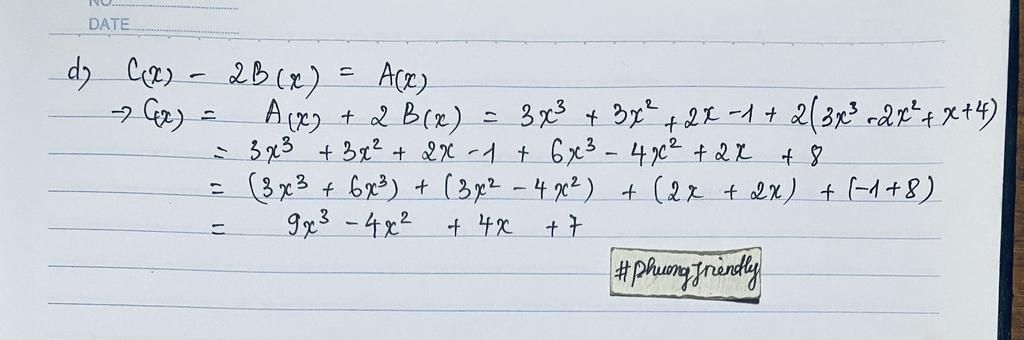 NO.
DATE
d) C(x) - 2B(x) = A(x)
→ C(x) = A(x) + 2B(x) = 3x³ + 3x² + 2x - 1 + 2(3x³ - 2x² + x + 4)
= 3x³ + 3x² + 2x - 1 + 6x³ - 4x² + 2x + 8
= (3x³ + 6x³) + (3x² - 4x²) + (2x + 2x) + (-1 + 8)
= 9x³ - 4x² + 4x + 7
#phuongfriendly